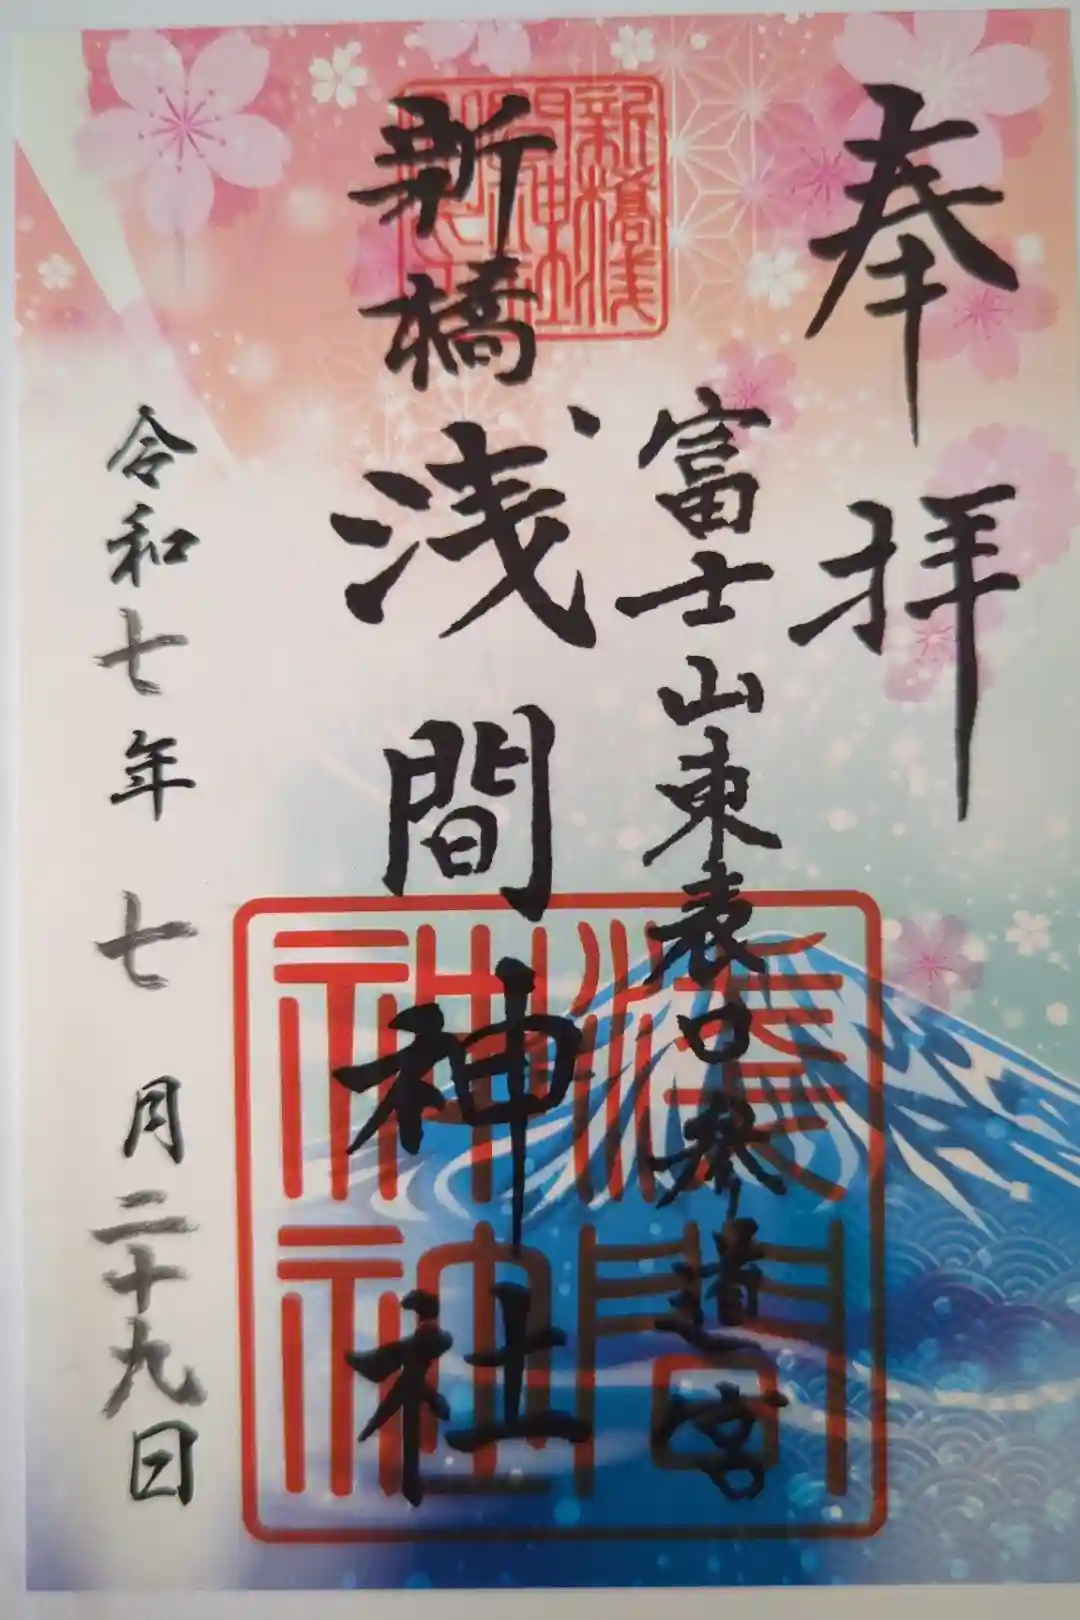 奉拝
富士山東表口参道宮
新橋浅間神社
令和七年 七月二十九日
浅間神社